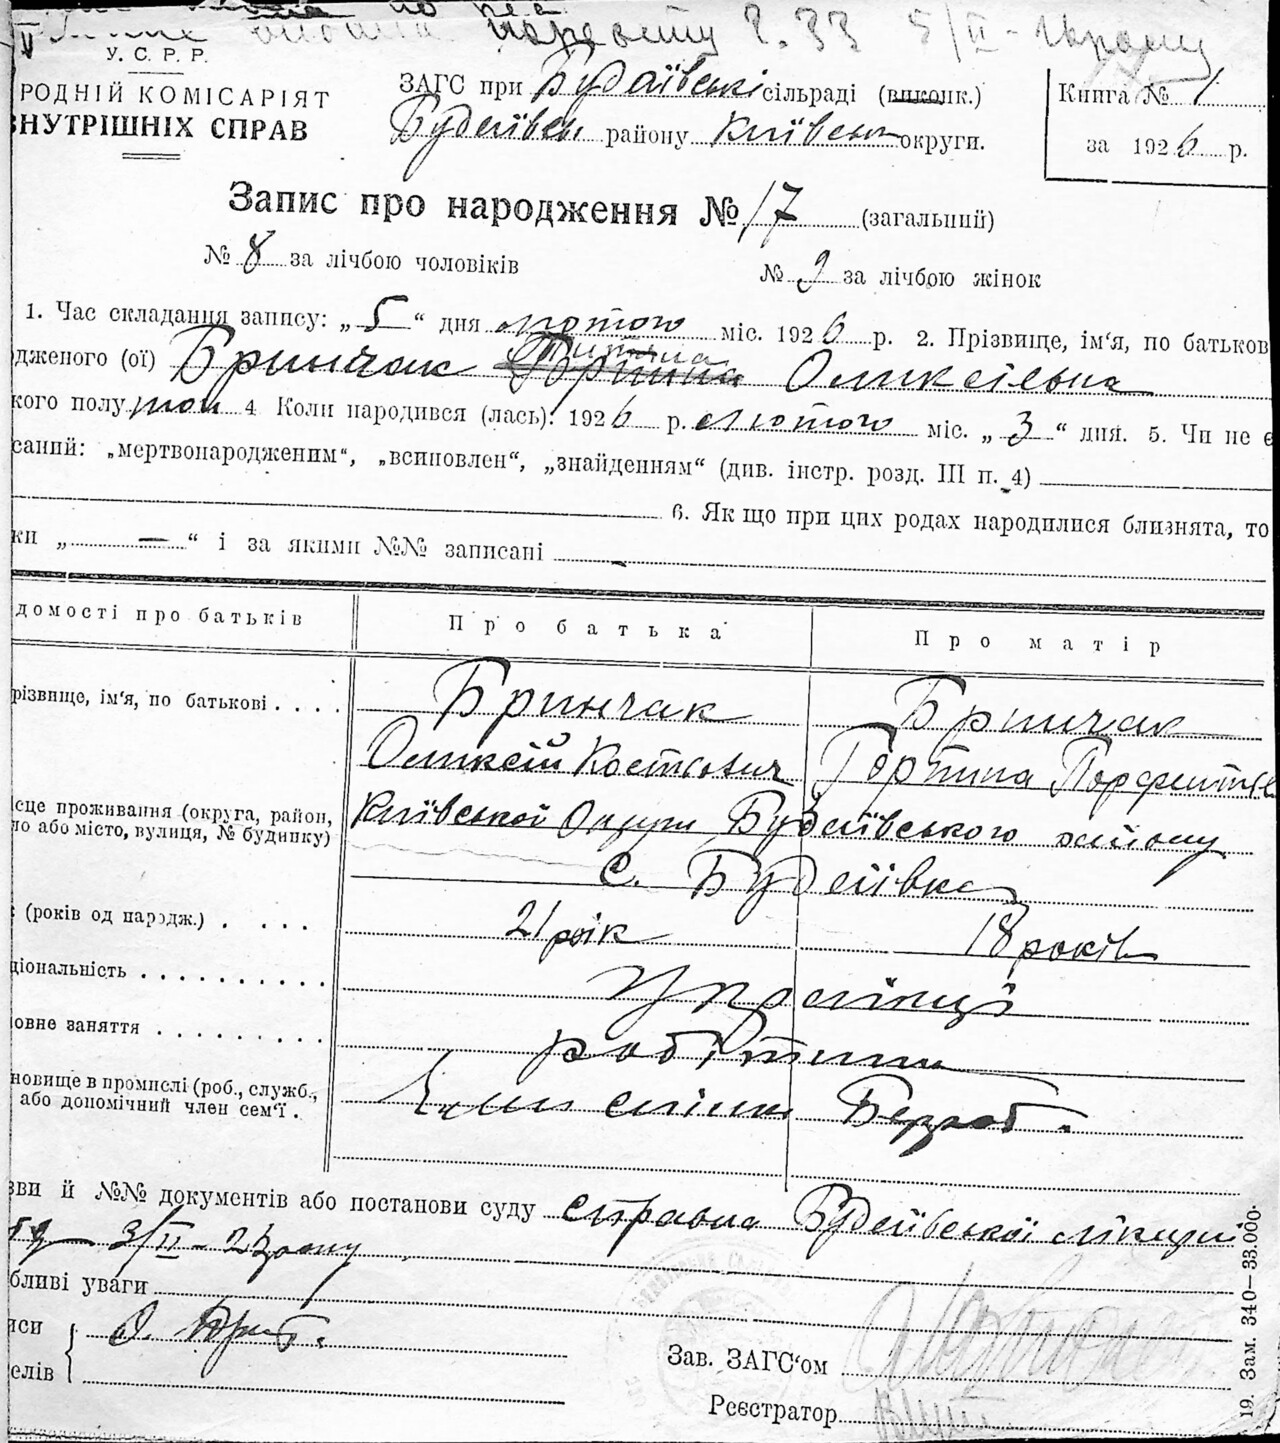 У. С. Р. Р.
РОДНІЙ КОМІСАРІЯТ
ВНУТРІШНІХ СПРАВ
ЗАГС при Будаївські сільраді (виконк.)
Будаївськ району Київськ округи.
Книга № 1
за 1926 р.
Запис про народження № 17 (загальний)
№ 8 за лічбою чоловіків № 9 за лічбою жінок
1. Час складання запису: „5“ дня лютого міс. 1926 р. 2. Прізвище, ім'я, по батьков
дженого (ої) Бринчак Оликсіевна
кого полу жон 4 Коли народився (лась): 1926 р. лютого міс. „3“ дня. 5. Чи не є
саний: „мертвонародженим“, „всиновлен“, „знайденням“ (див. інстр. розд. III п. 4)
6. Як що при цих родах народилися близнята, то
ки „ — “ і за якими №№ записані
домості про батьків Про батька Про матір
різвище, ім'я, по батькові . . . . Бринчак Бринчак
Оликсій Костьович
ісце проживання (округа, район, Київськой Округи Будаївського району
ло або місто, вулиця, № будинку)
с. Будаївка
(років од нарідж.) . . . . 21 рік 18 років
ціональність . . . . . . . . . . Українці
овне заняття . . . . . . . . .
новище в промислі (роб., служб.,
або допомічний член сем'ї . Безроб.
зви й №№ документів або постанови суду справка Будаївської лікарні
3/II-
бливі уваги
иси
елів
Зав. ЗАГС'ом
Реєстратор
19. Зам. 340—33.000.